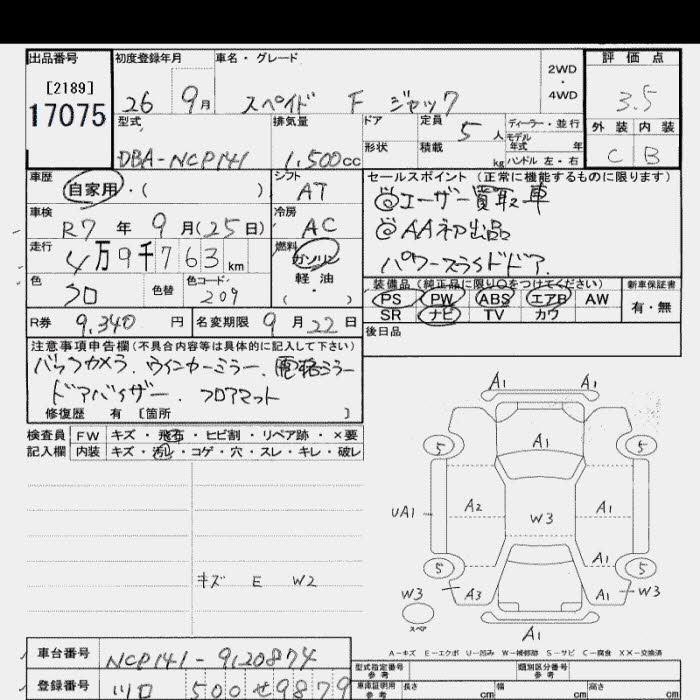 出品番号
[2189]
17075
初度登録年月
26 9月
車名・グレード
スペイド F ジャック
2WD
・
4WD
評価点
3.5
外装 内装
C B
型式
DBA-NCP141
排気量
1,500cc
ドア
形状
定員
5 人
積載
kg
ディーラー・並行
モデル
年式 年
ハンドル 左・右
車歴
自家用・( )
シフト
AT
車検
R7 年 9月(25日)
冷房
AC
走行
4万9千763km
燃料
ガソリン
軽油
( ・ )
色
クロ
色替
色コード
209
R券
9,340 円
名変期限 9月22日
セールスポイント (正常に機能するものに限ります)
◎ユーザー買取車
◎AA初出品
パワースライドドア.
装備品(純正品に限り○をつけてください)
PS PW ABS エアB AW
SR ナビ TV カワ
新車保証書
有・無
後日品
注意事項申告欄(不具合内容等は具体的に記入して下さい)
バックカメラ.ウインカーミラー.電格ミラー
ドアバイザー.フロアマット
修復歴 有 [箇所 ]
検査員
記入欄
FW キズ・飛石・ヒビ割・リペア跡・×要
内装 キズ・汚レ・コゲ・穴・スレ・キレ・破レ
キズ E W2
A1 A1
A1
5 5
UA1 A2 W3 A1
A1
5 5
W3 A3 A1 W3
スペア
A1
A-キズ E-エクボ U-凹み W-補修跡 S-サビ C-腐食 XX-交換済
車台番号
NCP141-9120874
登録番号
川口 500 せ 9879
型式指定番号
参考
類別区分番号
参考
車庫証明用
参考
長さ cm
幅 cm
高さ cm